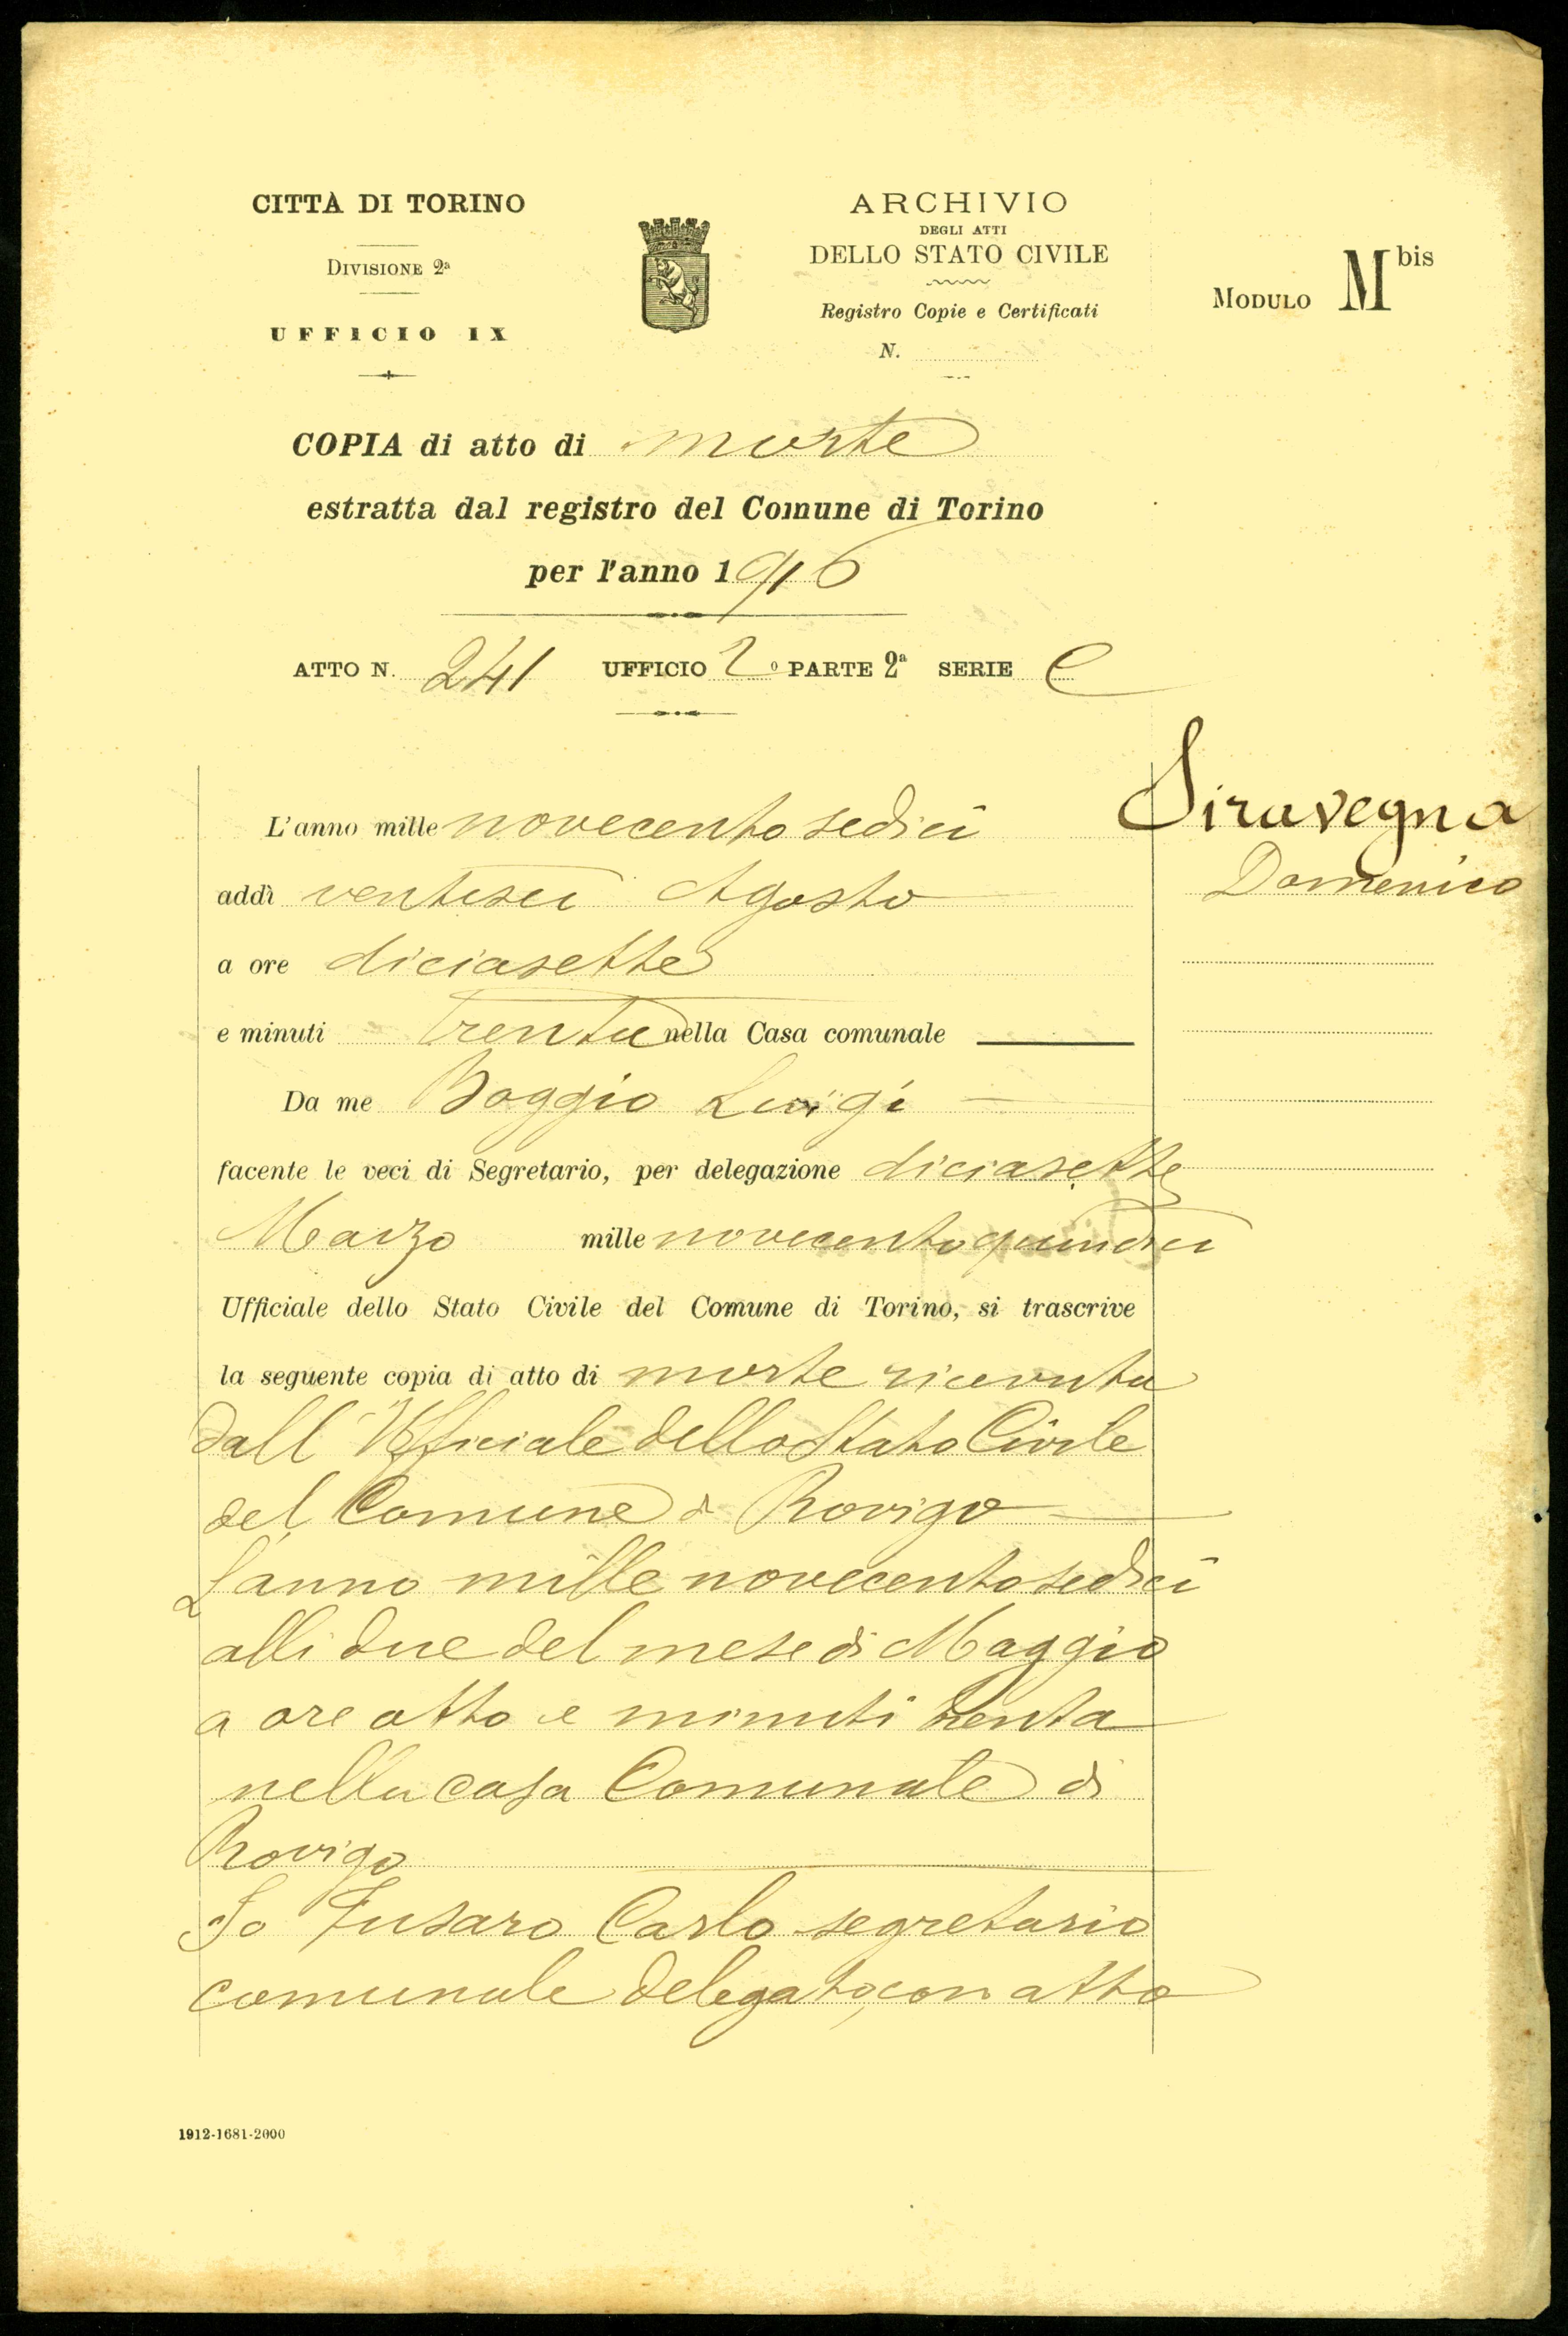 CITTÀ DI TORINO
DIVISIONE 2ª
UFFICIO IX
ARCHIVIO
DEGLI ATTI
DELLO STATO CIVILE
Registro Copie e Certificati
N.
MODULO M bis
COPIA di atto di morte
estratta dal registro del Comune di Torino
per l'anno 1916
ATTO N. 241 UFFICIO 2º PARTE 2ª SERIE C
Siravegna
Domenico
L'anno mille novecento sedici
addì ventisei Agosto
a ore diciasette
e minuti trenta nella Casa comunale
Da me Boggio Luigi
facente le veci di Segretario, per delegazione diciasette
Marzo mille novecento quindici
Ufficiale dello Stato Civile del Comune di Torino, si trascrive
la seguente copia di atto di morte ricevuta
dall'Ufficiale dello Stato Civile
del Comune di Rovigo
L'anno mille novecento sedici
alli due del mese di Maggio
a ore otto e minuti trenta
nella casa Comunale di
Rovigo
Io Fusaro Carlo segretario
comunale delegato, con atto
1912-1681-2000